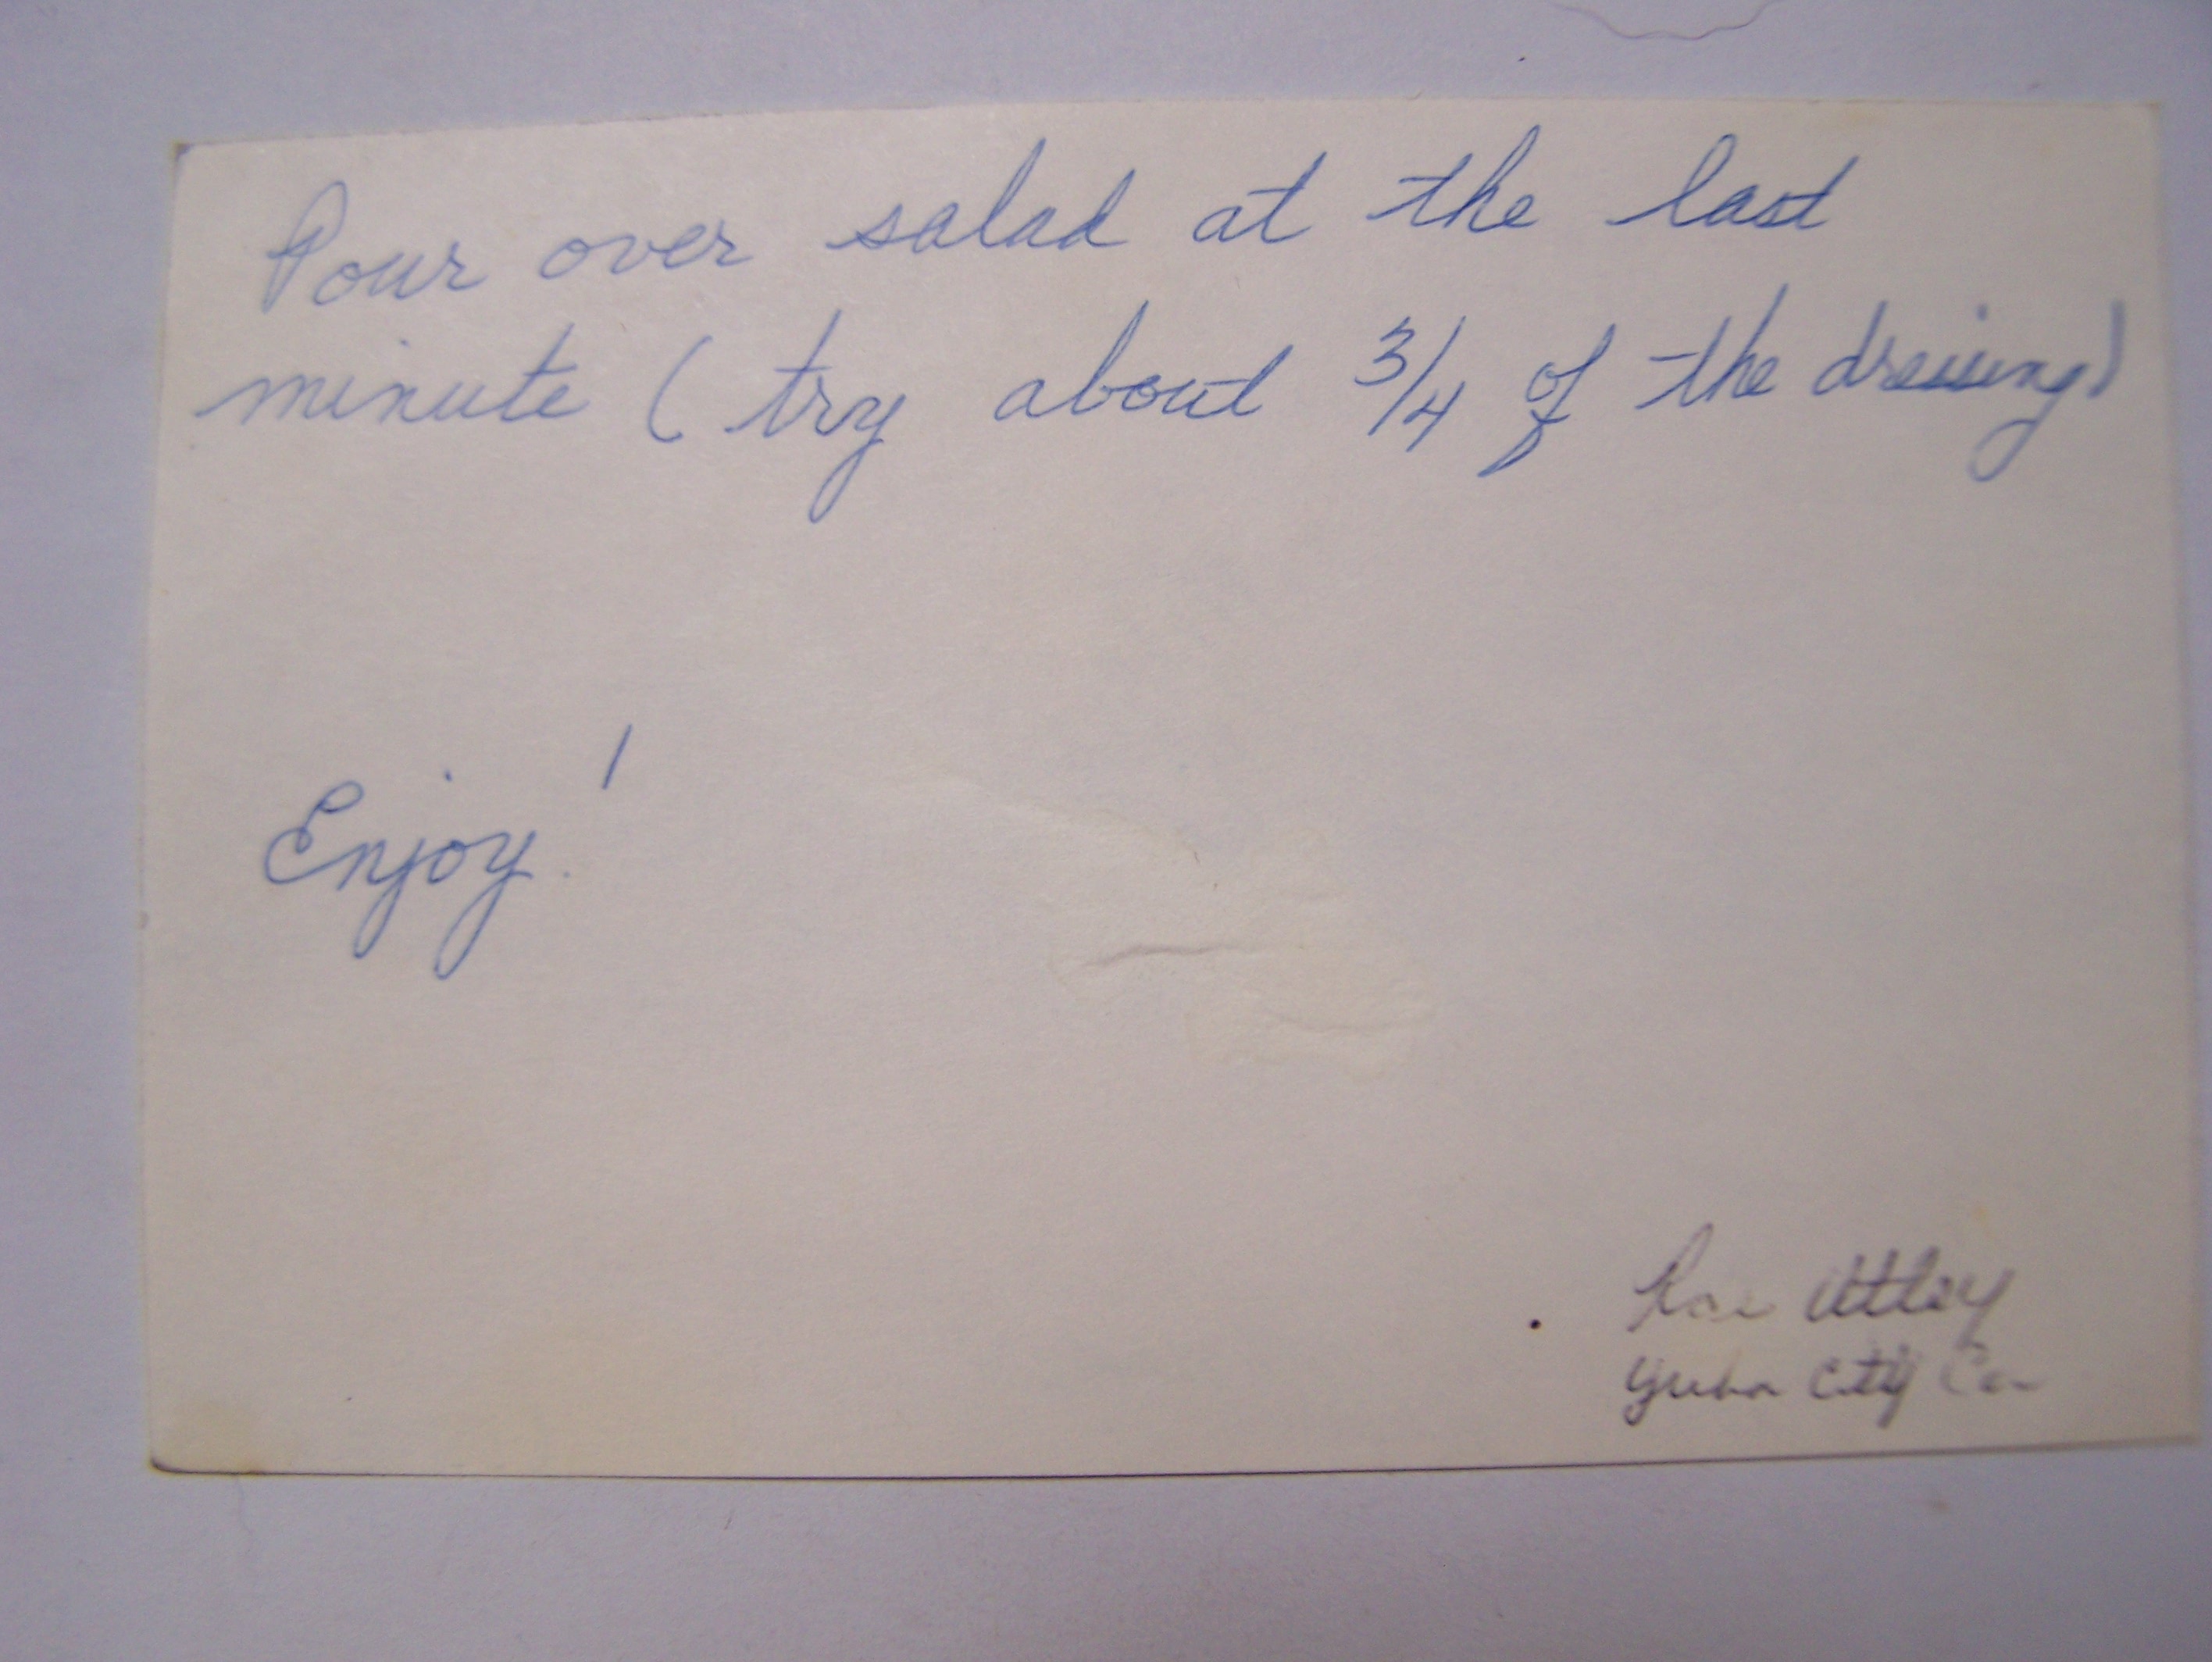 Pour over salad at the last
minute (try about 3/4 of the dressing)
Enjoy!
Rae Utley
Yuba City Ca